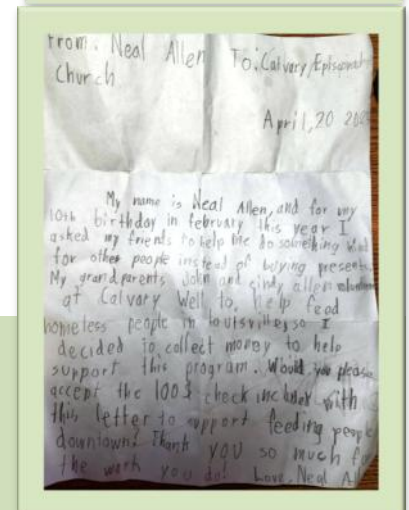 From: Neal Allen To: Calvary Episcopal
Church
April, 20
My name is Neal Allen, and for my
10th birthday in february this year I
asked my friends to help me do something kind
for other people instead of buying presents.
My grandparents John and cindy allen volunteer
at Calvary Well to, help feed
homeless people in louisville, so I
decided to collect money to help
support this program. Would you please
accept the 100$ check with
this letter to support feeding people
downtown? Thank you so much for
the work you do! Love, Neal